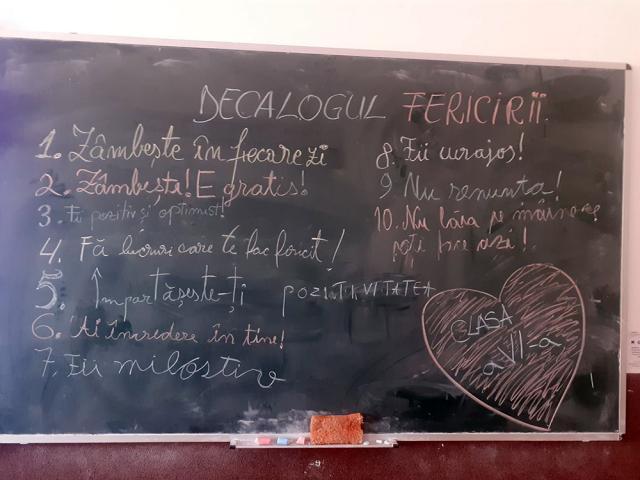 DECALOGUL FERICIRII.
1. Zâmbește în fiecare zi
2. Zâmbește! E gratis!
3. Fii pozitiv și optimist!
4. Fă lucruri care te fac fericit!
5. Împărtășește-ți POZITIVITATEA
6. Ai încredere în tine!
7. Fii milostiv
8. Fii curajos!
9 Nu renunta!
10. Nu lăsa pe mâine ce
poți face azi!
CLASA
a VII-a